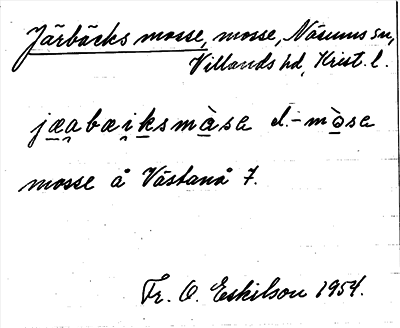 Järbäcks mosse, mosse, Näsums sn,
Villands hd, Krist. l.
jæabæiksmàse el. -mòse
mosse å Västanå 7.
Fr. O. Eskilson 1954.